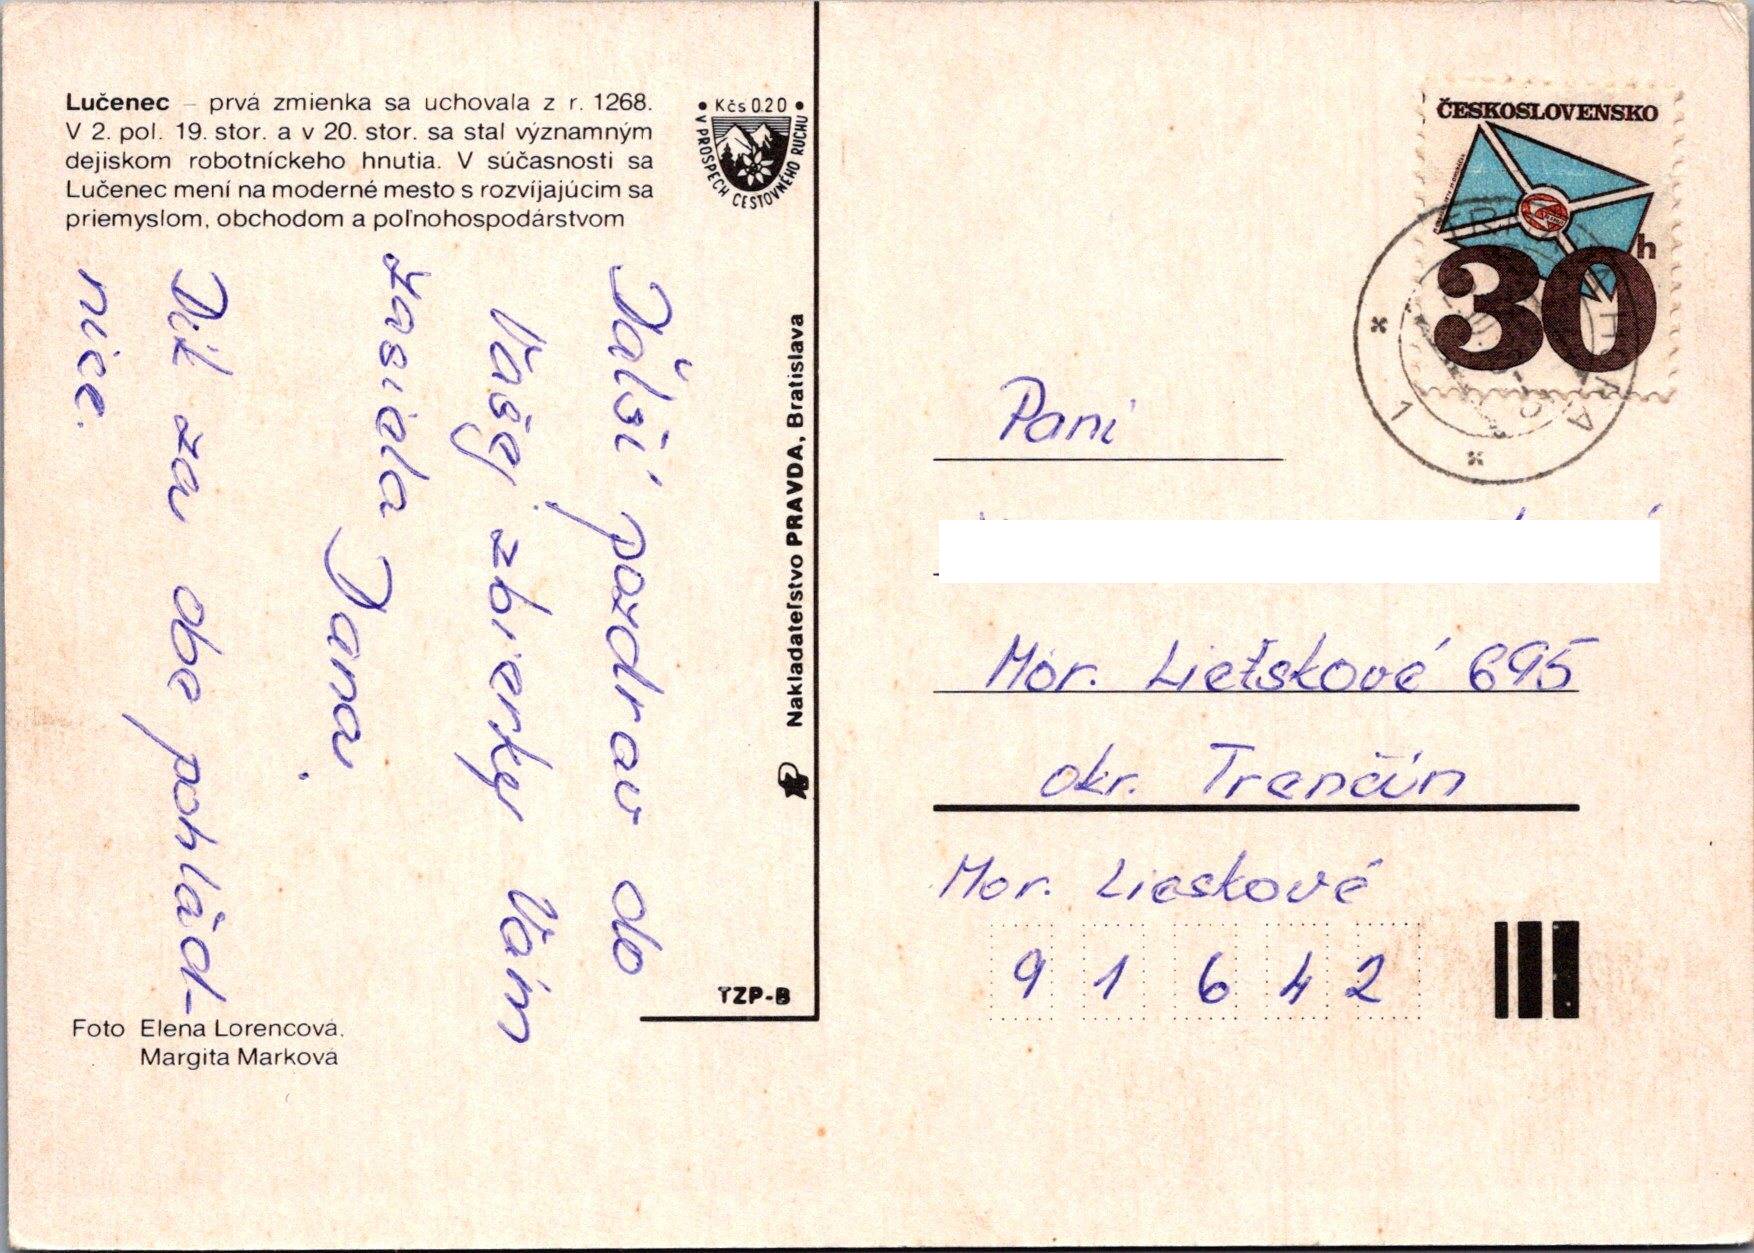 Lučenec – prvá zmienka sa uchovala z r. 1268.
V 2. pol. 19. stor. a v 20. stor. sa stal významným
dejiskom robotníckeho hnutia. V súčasnosti sa
Lučenec mení na moderné mesto s rozvíjajúcim sa
priemyslom, obchodom a poľnohospodárstvom
• Kčs 0.20 •
V PROSPECH CESTOVNÉHO RUCHU
Ďalší pozdrav do
Vašej zbierky Vám
zasiela Jana.
Dik za obe pohľad-
nice.
Foto Elena Lorencová,
Margita Marková
Nakladateľstvo PRAVDA, Bratislava
TZP-B
ČESKOSLOVENSKO
30 h
Pani
Mor. Lieskové 695
okr. Trenčín
Mor. Lieskové
9 1 6 4 2